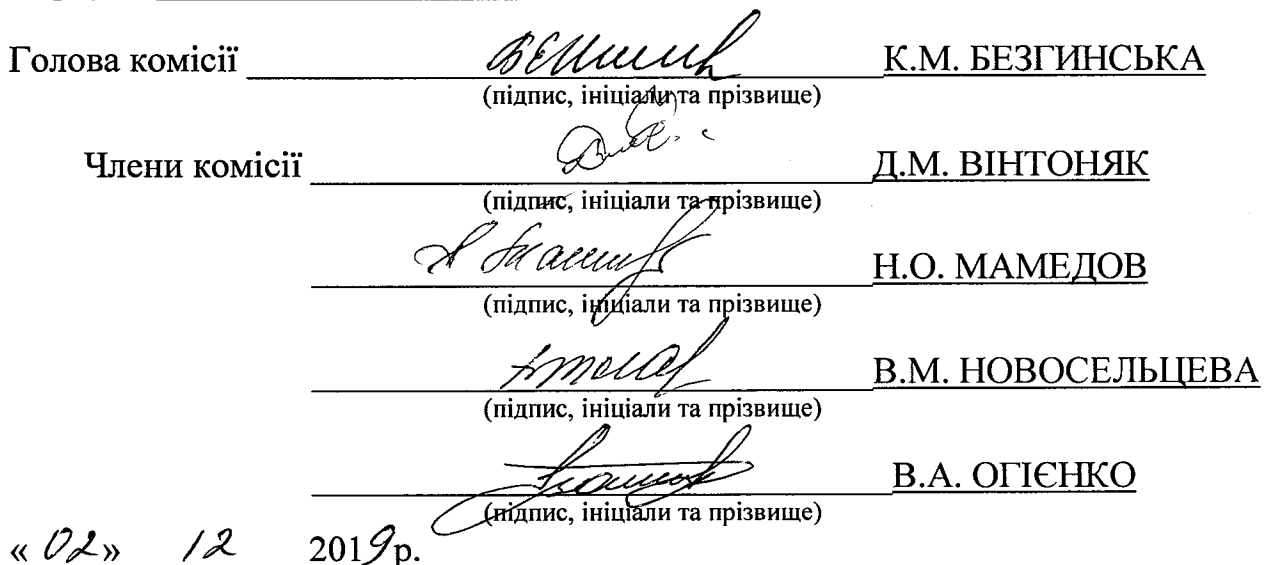 Голова комісії К.М. БЕЗГИНСЬКА
(підпис, ініціали та прізвище)
Члени комісії Д.М. ВІНТОНЯК
(підпис, ініціали та прізвище)
Н.О. МАМЕДОВ
(підпис, ініціали та прізвище)
В.М. НОВОСЕЛЬЦЕВА
(підпис, ініціали та прізвище)
В.А. ОГІЄНКО
(підпис, ініціали та прізвище)
« 02» 12 2019р.